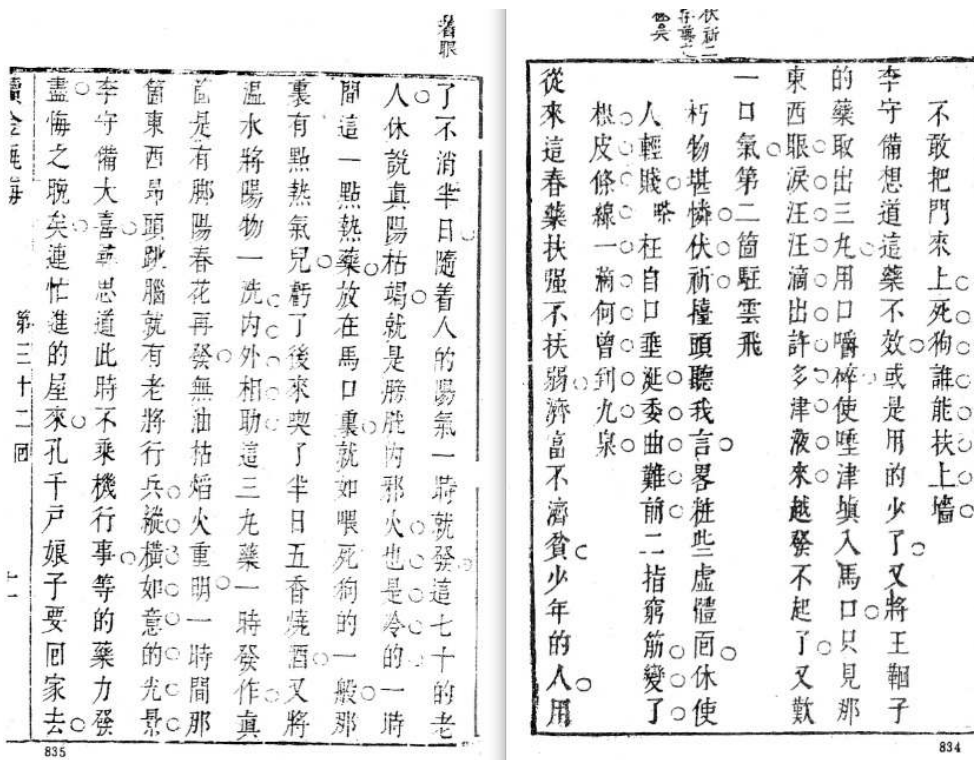 伏祈二
不敢把門來上死狗誰能扶上墻
李守備想道這藥不效或是用的少了又將王輞子
的藥取出三丸用口嚼碎使唾津填入馬口只見那
東西眼淚汪汪滴出許多津液來越發不起了又歎
一口氣第二箇駐雲飛
朽物堪憐伏祈擡頭聽我言畧粧些虛體面休使
人輕賤嗏枉自口垂涎委曲難前二指窮筋變了
根皮條線一滴何曾到九泉
從來這春藥扶强不扶弱濟富不濟貧少年的人用
834
着眼
了不消半日隨着人的陽氣一時就發這七十的老
人休說真陽枯竭就是膀胱内邪火也是冷的一時
間這一點熱藥放在馬口裏就如喂死狗的一般那
裏有點熱氣兒虧了後來喫了半日五香燒酒又將
温水將陽物一洗内外相助這三丸藥一時發作真
箇是有脚陽春花再發無油枯熖火重明一時間那
箇東西昂頭跳腦就有老將行兵縱橫如意的光景
李守備大喜尋思道此時不乘機行事等的藥力發
盡悔之晚矣連忙進的屋來孔千戸娘子要囘家去
續金瓶梅 第三十二囘 十一
835